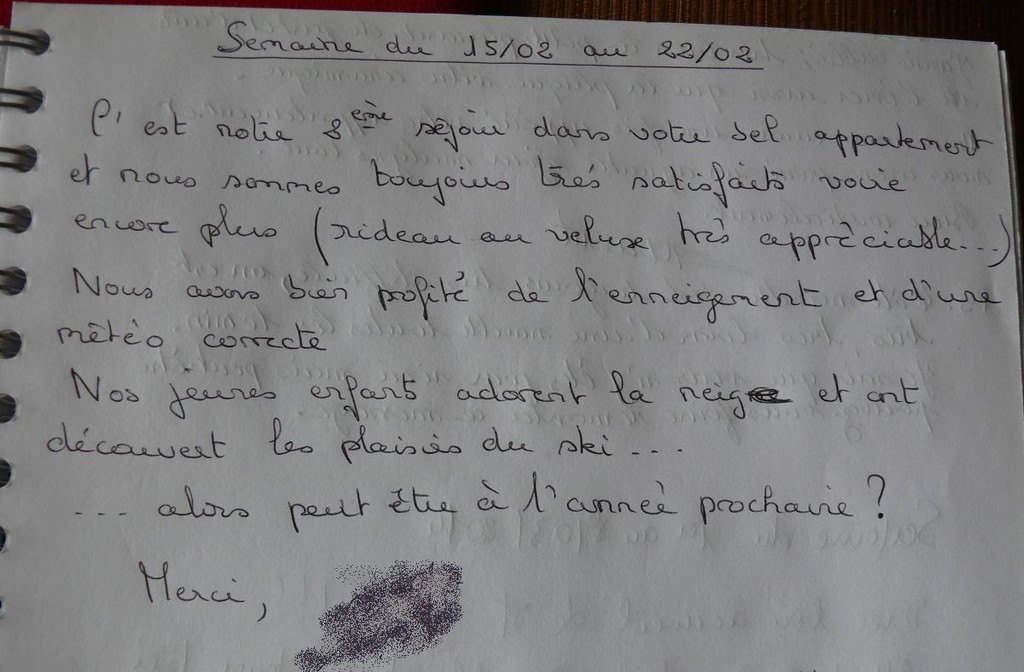 Semaine du 15/02 au 22/02
C'est notre 8ème séjour dans votre bel appartement
et nous sommes toujours très satisfaits voire
encore plus (rideau au velux très appréciable...)
Nous avons bien profité de l'enneigement et d'une
météo correcte
Nos jeunes enfants adorent la neige et ont
découvert les plaisirs du ski...
... alors peut être à l'année prochaine ?
Merci,